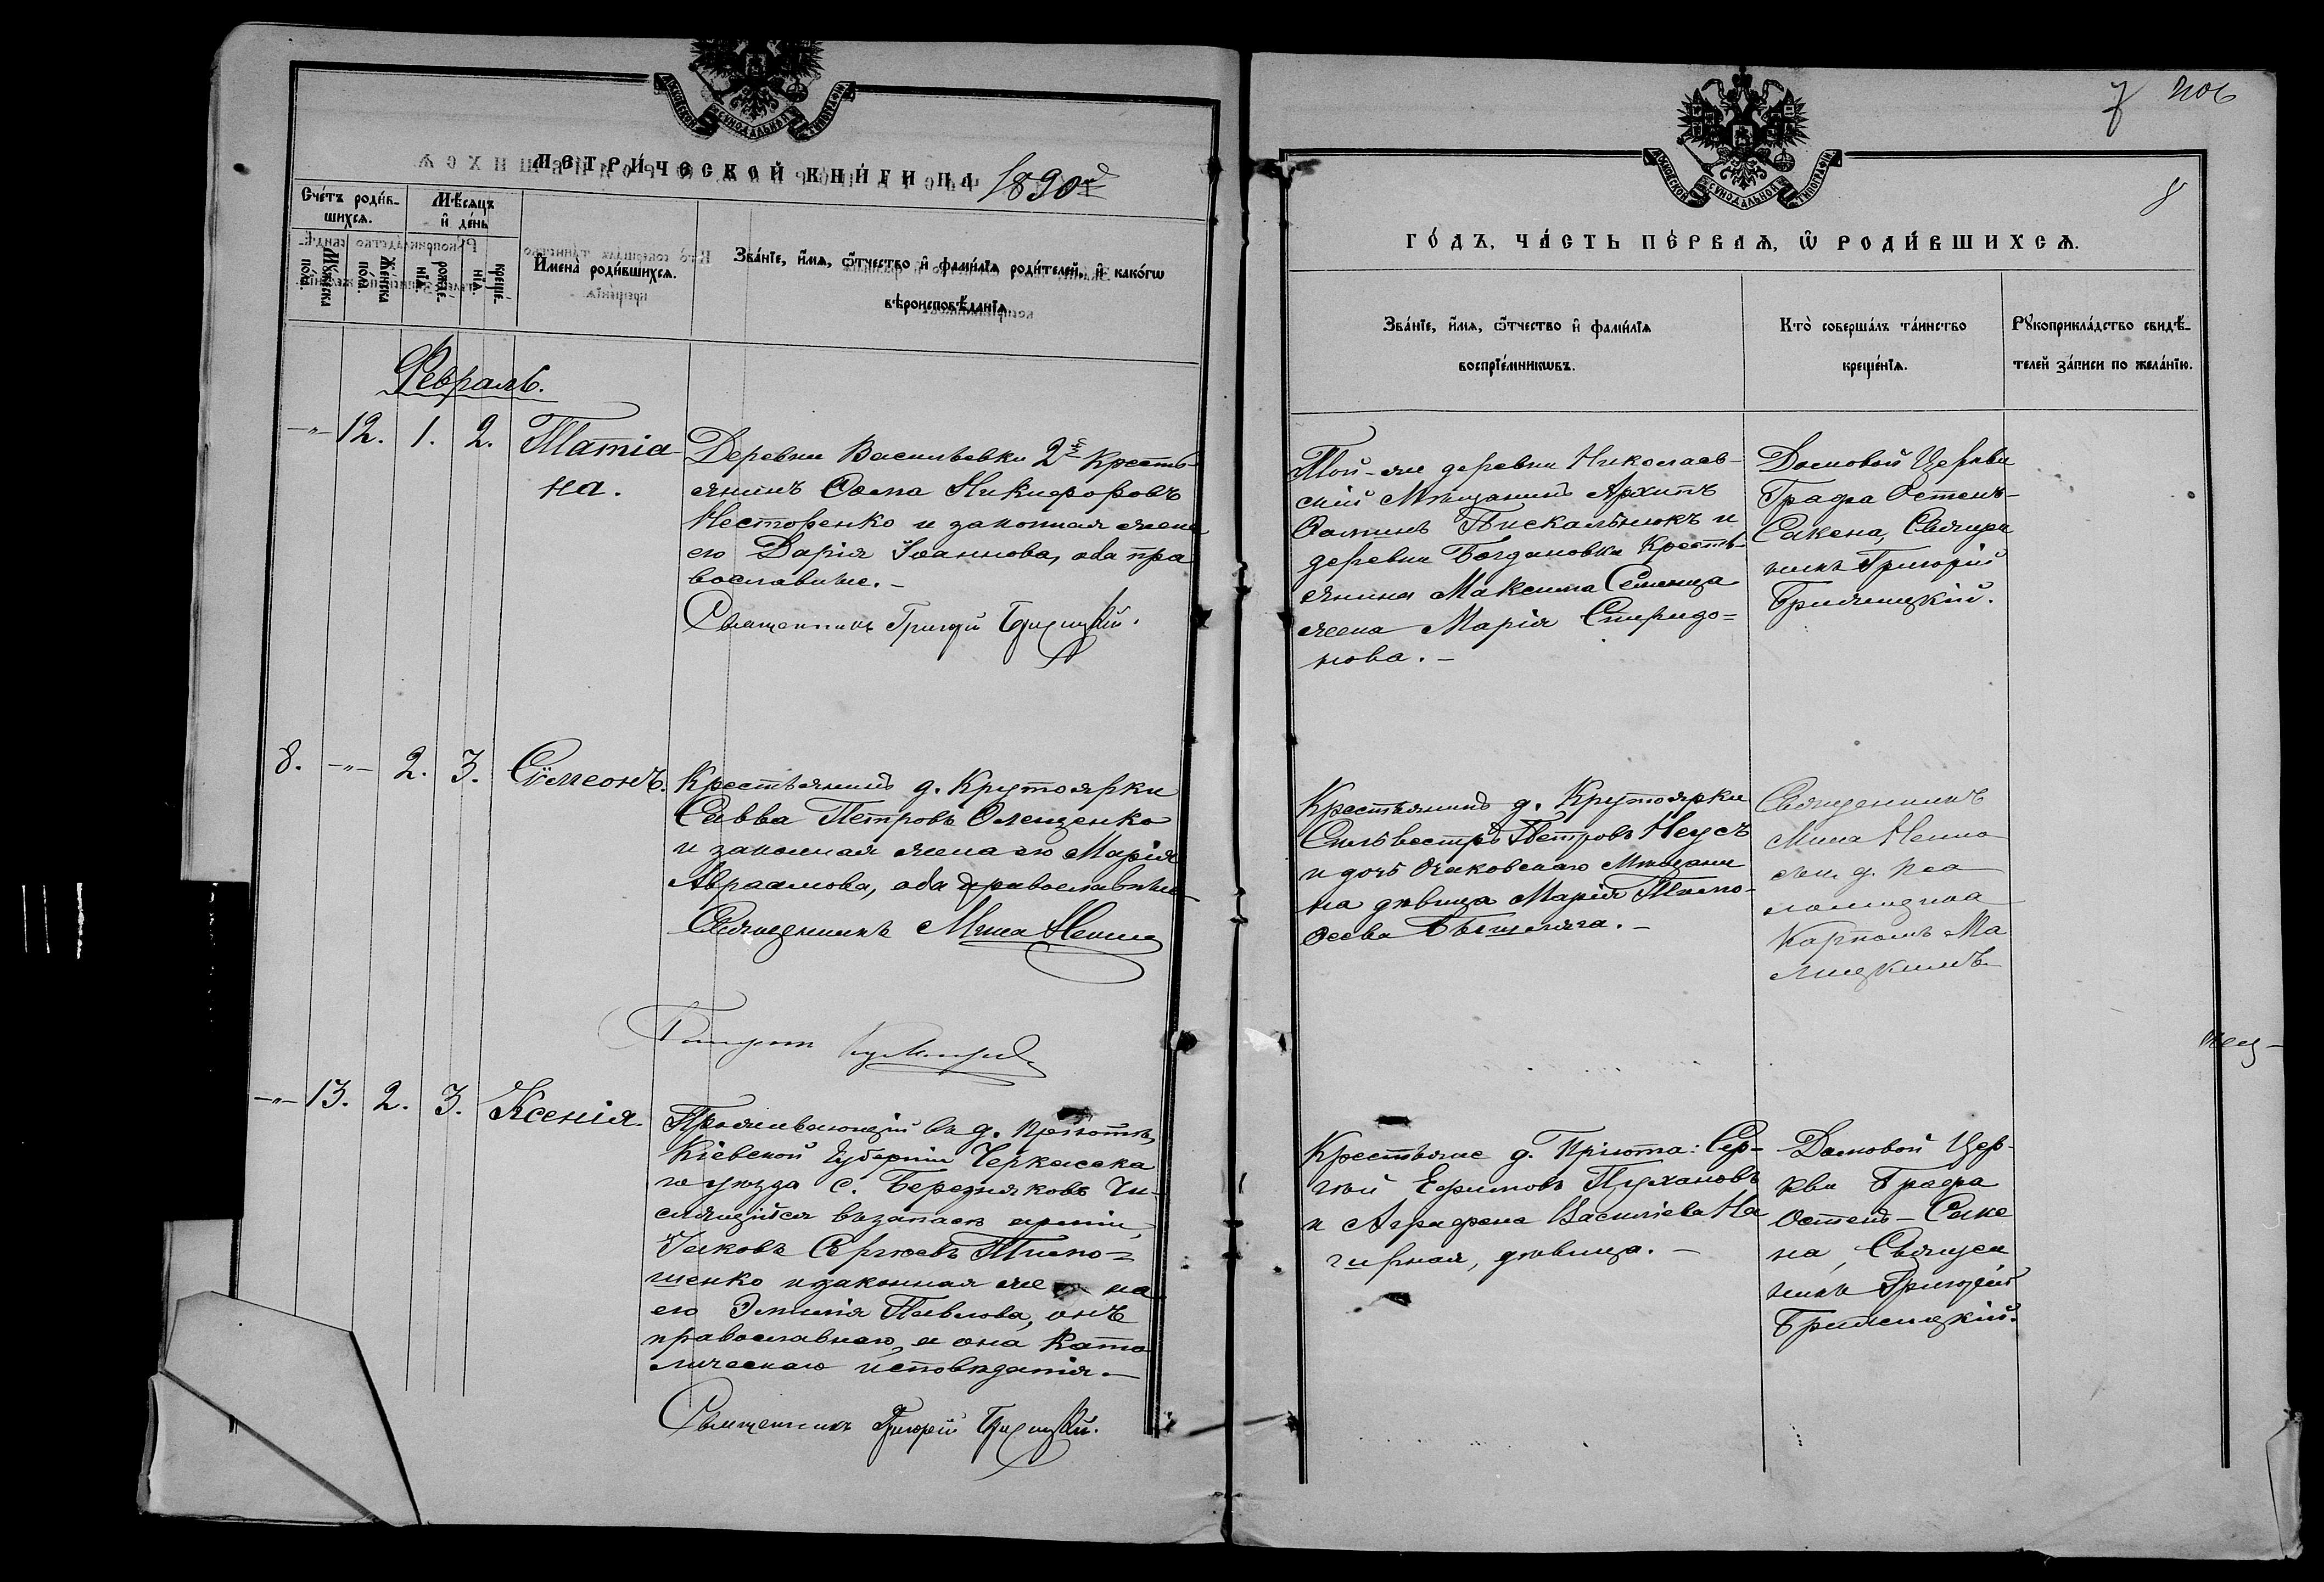 МОСКОВСКОЙ СѴНОДАЛЬНОЙ ТИПОГРАФІИ
МЕТРИ́ЧЕСКОЙ КНИ́ГИ НА 1890й
Сче́тъ роди́в-
шихсѧ.
Мѣ́сѧцъ
и҆ де́нь
Мꙋ́жеска
по́ла.
Же́нска
по́ла.
рожде́-
нїѧ.
креще́-
нїѧ.
И҆мена̀ роди́вшихсѧ.
Зва́нїе, и҆́мѧ, ѻ҆́тчество и҆ фами́лїѧ роди́телей, и҆ како́гѡ
вѣроисповѣ́данїѧ.
Февраль.
-"- 12. 1. 2. Татіа-
на.
Деревни Васильевки 2й Кресть-
янинъ Ѳома Никифоровъ
Нестеренко и законная жена
его Дарія Іоаннова, оба пра
вославные.-
Священникъ Григорій
8. -"- 2. 3. Сѵмеонъ.
Крестьянинъ д. Крутоярки
Савва Петровъ Олещенко
и законная жена его Марія
Авраамова, оба православные
Священникъ Мина
-"- 13. 2. 3. Ксенія.
Проживающій въ д. Пріютѣ,
Кіевской Губерніи Черкасска
го уѣзда с. Березняковъ Чи-
слящійся въ запасѣ арміи,
Іаковъ Сергѣевъ Тимо-
шенко и законная же на
его Эмилія Павлова, онъ
православнаго, а она Като
лическаго исповѣданія.-
Священникъ Григорій
7
8
МОСКОВСКОЙ СѴНОДАЛЬНОЙ ТИПОГРАФІИ
ГО́ДЪ, ЧА́СТЬ ПЕ́РВАѦ, Ѡ҆ РОДИ́ВШИХСѦ.
Зва́нїе, и҆́мѧ, ѻ҆́тчество и҆ фами́лїѧ
воспрїе́мникѡвъ.
Кто̀ соверша́лъ та́инство
креще́нїѧ.
Рꙋкоприкла́дство свидѣ́-
телей за́писи по жела́нїю.
Той-же деревни Николаев-
скій Мѣщанинъ Архипъ
Ѳоминъ Пискальнюкъ и
деревни Богдановки Кресть-
янина Максима
жена Марія Спиридо=
нова.-
Домовой Церкви
Графа Остенъ-
Сакена, Священ
никъ Григорій
Крестьянинъ д. Крутоярки
Сильвестръ Петровъ Неусъ
и дочь Очаковскаго Мѣщани
на дѣвица Марія Тимо-
ѳеева
Священникъ
Мина
Карпомъ Ма
Крестьяне д. Пріюта: Сер-
гѣй Ефимовъ Плухановъ
и Аграфена Василіева На
гирная, дѣвица.-
Домовой Цер-
кви Графа
Остенъ-Саке
на, Священ
никъ Григорій